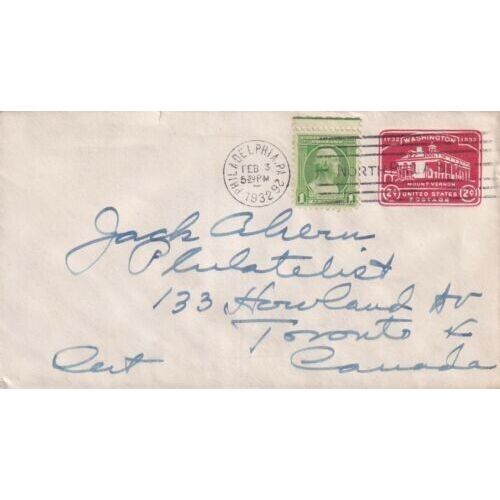 PHILADELPHIA, PA. 2
FEB 3
5 30 PM
1932
1 1
NORTH
1732 WASHINGTON 1932
MOUNT VERNON
2¢ UNITED STATES 2¢
POSTAGE
Jack Ahern
Philatelist
133 Howland Av
Toronto 4
Ont Canada